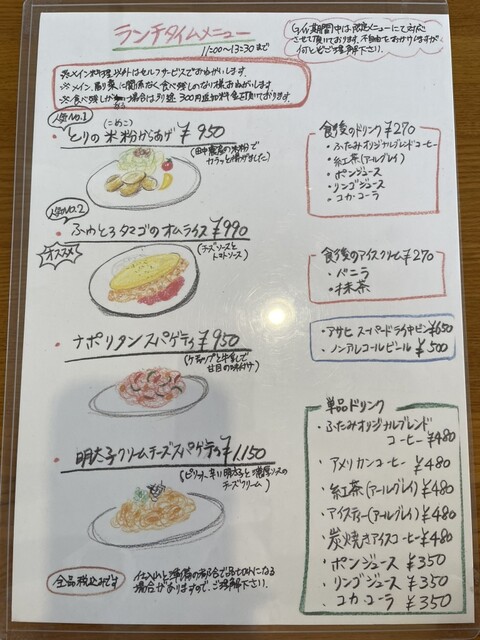 ランチタイムメニュー
11:00〜13:30まで
GW期間中は限定メニューにて対応
させて頂いております。不自由をおかけしますが
何とぞご理解下さい。
※メイン料理以外はセルフサービスでお願いします。
※メイン、副菜に関係なく食べ残しのない様お願いします
※食べ残しが 場合は別途300円追加料金を頂いております。
人気No.1
(こめこ)
とりの米粉からあげ ¥950
(田中農園の米粉で
カラッと揚げました)
人気No.2
ふわとろタマゴのオムライス ¥990
(チーズソースと
トマトソース)
オススメ
ナポリタンスパゲティ ¥950
(ケチャップと牛乳で
甘目の味付け)
明太子クリームチーズスパゲティ ¥1,150
(ピリッ、辛い明太子と濃厚ソースの
チーズクリーム)
全品税込みです
仕込みと準備の都合で品切れになる
場合がありますので、ご理解下さい。
食後のドリンク ¥270
・ふたみオリジナルブレンドコーヒー
・紅茶(アールグレイ)
・ポンジュース
・リンゴジュース
・コカ・コーラ
食後のアイスクリーム ¥270
・バニラ
・抹茶
・アサヒ スーパードライ中ビン ¥650
・ノンアルコールビール ¥500
単品ドリンク
・ふたみオリジナルブレンド
コーヒー ¥480
・アメリカンコーヒー ¥480
・紅茶(アールグレイ) ¥480
・アイスティー(アールグレイ) ¥480
・炭焼きアイスコーヒー ¥480
・ポンジュース ¥350
・リンゴジュース ¥350
・コカ・コーラ ¥350